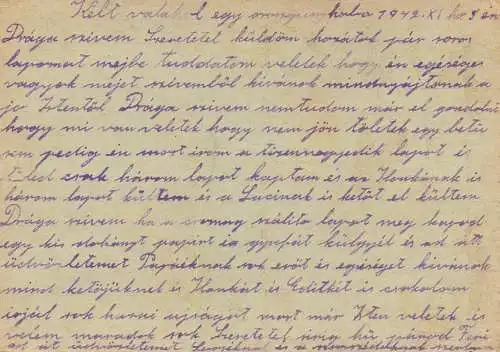 Kelt valahol egy oroszpunkaba 1942. XI hó 8 án
Drága szivem Szeretetel küldöm hozátok pár soros
lapomat mejbe tuddatom veletek hogy én egéséges
vagyok mejet szivemböl kivánok mindnyájatonak a
jo Istentöl Drága szivem nemtudom már el gondolni
hogy mi van veletek hogy nem jön töletek egy betü
sem pedig én most irom a tizennegyedik lapot és
töled csak három lapot kaptam és az Ilonkának is
három lapot kültem és a Lacinak is ketöt el kültem
Drága szivem ha a csomag szálito lapot meg kapod
egy kis dohányt papirt és gyufát külgyél és ad át
üdvözletemet Papáéknak sok eröt és egéséget kivánok
mind ketöjüknek és Ilonkát és Editkét és csokolom
sok hazai ujságot most már Isten veletek és
velem maradok sok Szeretetel hü párod Feri
ad át üdvözletemet és a